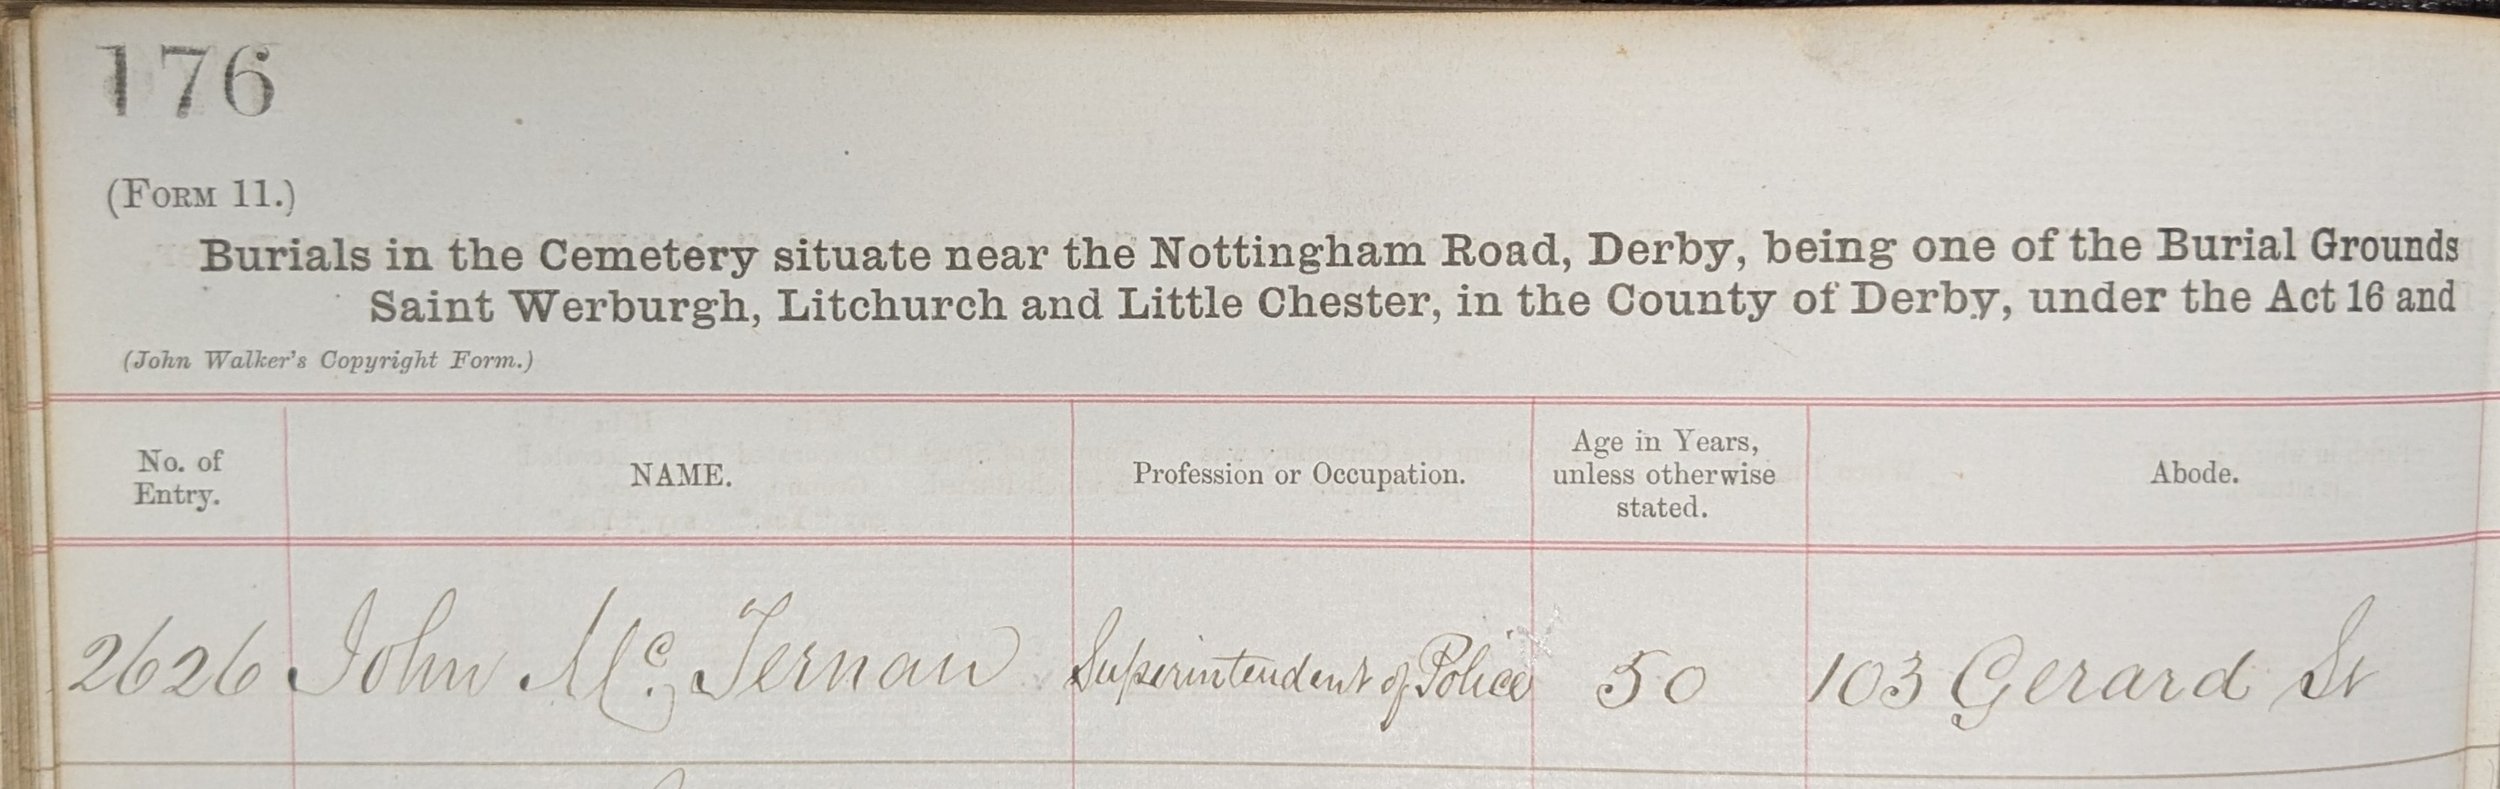 176
(FORM 11.)
Burials in the Cemetery situate near the Nottingham Road, Derby, being one of the Burial Grounds
Saint Werburgh, Litchurch and Little Chester, in the County of Derby, under the Act 16 and
(John Walker's Copyright Form.)
No. of Entry. NAME. Profession or Occupation. Age in Years, unless otherwise stated. Abode.
2626 John Mc. Ternan Superintendent of Police 50 103 Gerard St